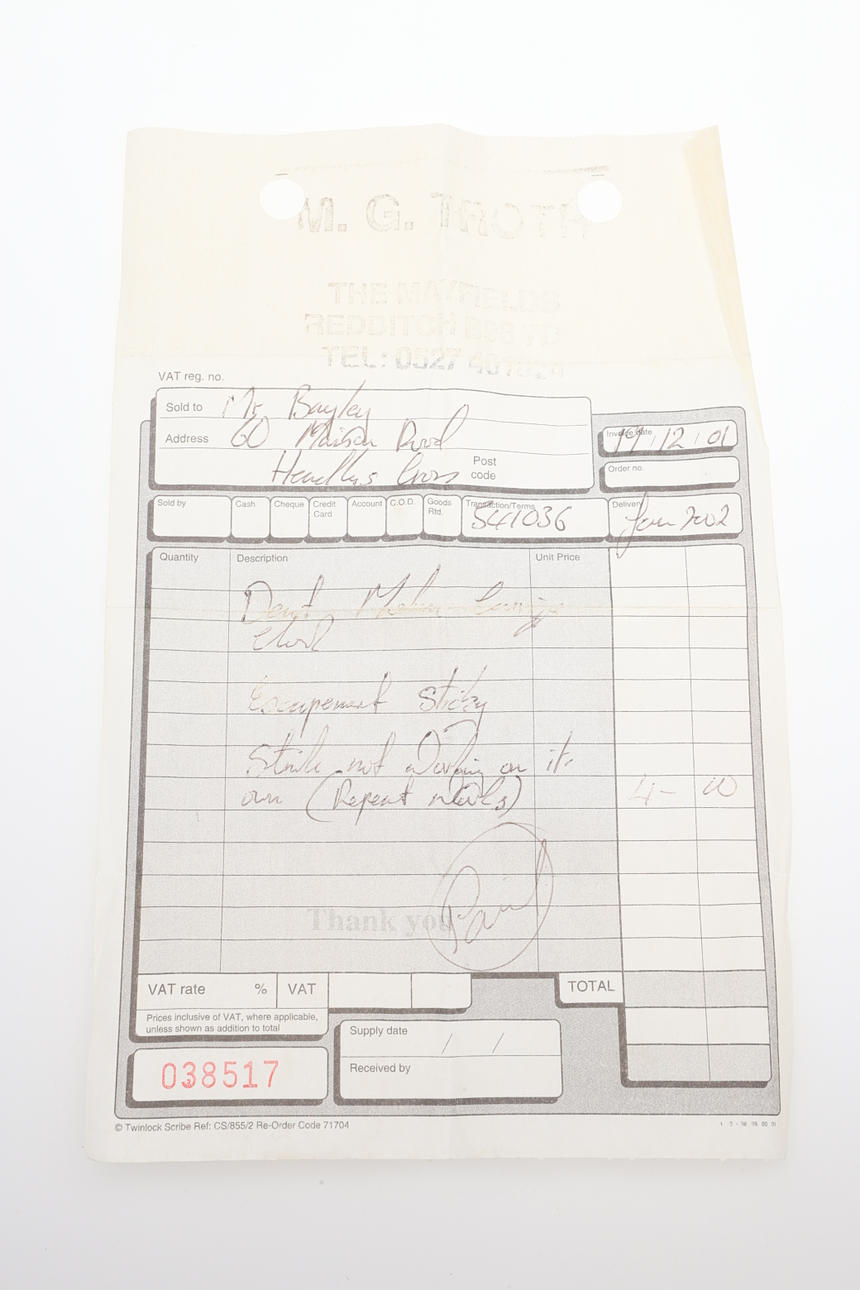 M. G. TROTH
THE MAYFIELDS
REDDITCH B98 7D
TEL: 0527
VAT reg. no.
Sold to Mr Bayley
Address 60 Road
Headless Cross
Post code
Invoice date 17/12/01
Order no.
Sold by
Cash
Cheque
Credit Card
Account
C.O.D.
Goods Rtd.
Transaction/Terms 541036
Delivery Jan 2002
Quantity Description Unit Price
Dent
Clock
Escapement Sticky
Strike not Working on its
own (Repeat Works) 4-00
Paid
Thank you
VAT rate % VAT
TOTAL
Prices inclusive of VAT, where applicable,
unless shown as addition to total
Supply date / /
Received by
038517
© Twinlock Scribe Ref: CS/855/2 Re-Order Code 71704